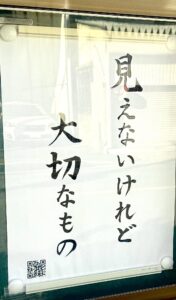 見えないけれど
大切なもの